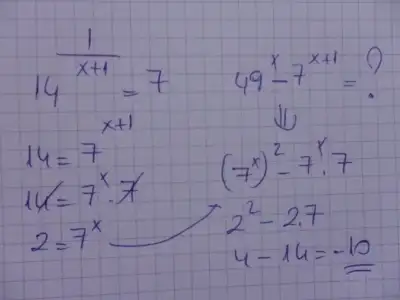 14^(1/(x+1)) = 7
14 = 7^(x+1)
14 = 7^x · 7
2 = 7^x
49^x - 7^(x+1) = ?
⇓
(7^x)^2 - 7^x · 7
2^2 - 2.7
4 - 14 = -10